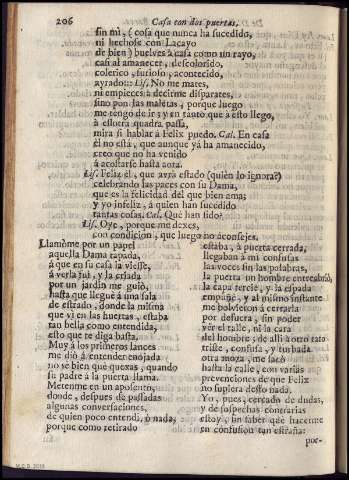 206
Casa con dos puertas,
sin mi, (cosa que nunca ha sucedido,
ni hechose con Lacayo
de bien) buelves à casa como un rayo,
casi al amanecer, descolorido,
colerico, furioso, acontecido,
ayrado:: Lis. No me mates,
ni empieces à decirme disparates,
sino pon las maletas, porque luego
me tengo de ir; y en tanto que à esto llego,
à essotra quadra passa,
mira si hablar à Felix puedo. Cal. En casa
èl no està, que aunque yà ha amanecido,
creo que no ha venido
à acostarse hasta aora.
Lis. Felix èl, que avrà estado (quièn lo ignora?)
celebrando las paces con su Dama,
que es la felicidad del que bien ama;
y yo infeliz, à quien han sucedido
tantas cosas. Cal. Què han sido?
Lis. Oye, porque me dexes,
con condicion, que luego no aconsejes.
Llamòme por un papel
aquella Dama tapada,
à que en su casa la viesse,
à verla fui, y la criada
por un jardin me guiò,
hasta que lleguè à una sala
de estrado, donde la misma
que vì en las huertas, estaba
tan bella como entendida,
esto que te diga basta.
Muy à los primeros lances
me diò à entender enojada
no sè bien què quexas, quando
su padre à la puerta llama.
Metenme en un aposento,
donde, despues de passadas
algunas conversaciones,
de quien poco entendi, ò nada,
porque como retirado
estaba, à puerta cerrada,
llegaban à mi confusas
las voces sin las palabras,
la puerta un hombre entreabriò,
la capa terciè, y la espada
empuñè, y al mismo instante
me bolvieron à cerrarla
por defuera, sin poder
vèr el talle, ni la cara
del hombre; de alli à otro rato
triste, confusa, y turbada
otra moza, me sacò
hasta la calle, con varias
prevenciones de que Felix
no supiera desto nada.
Yo, pues, cercado de dudas,
y de sospechas contrarias
estoy, sin saber què hacerme
en confusion tan estraña:
por-